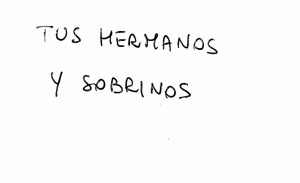 TUS HERMANOS
Y SOBRINOS